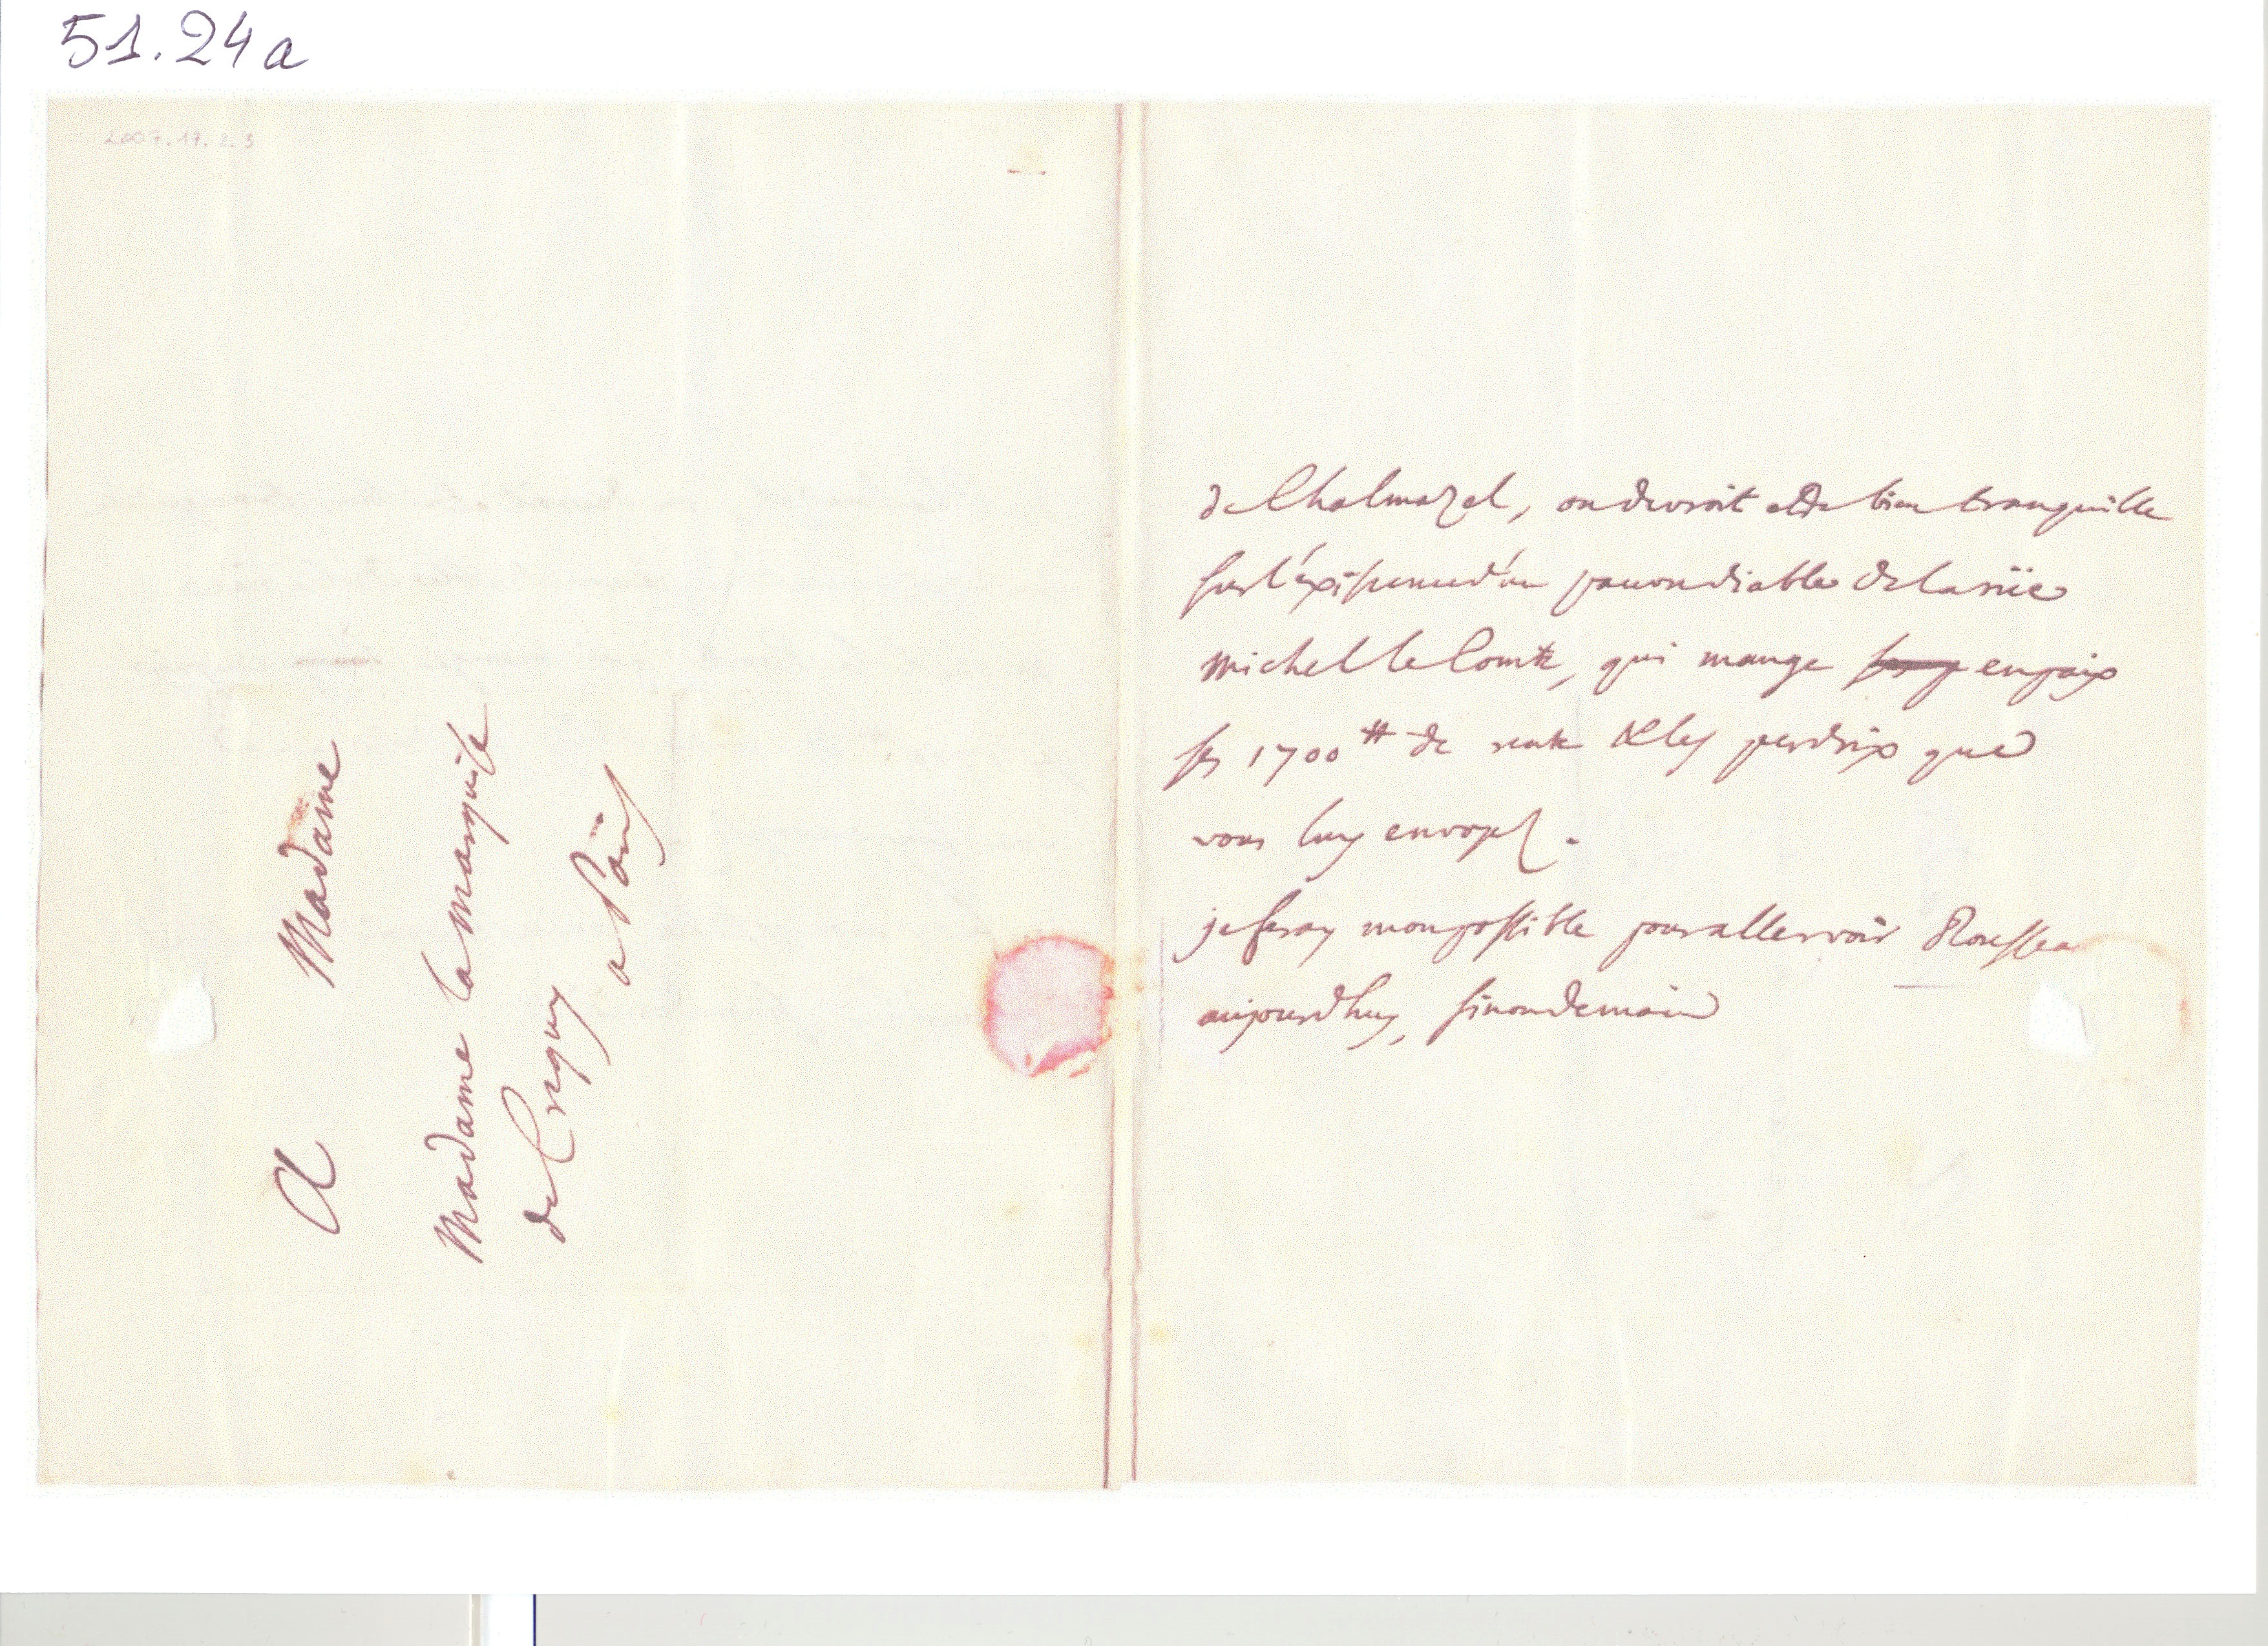 51.24a
2007.17.2.3
A Madame
Madame la marquise
de Crequy
a Paris
de Chalmazel, on devroit etre bien tranquille
sur l'existence d'un pauvre diable de la rüe
michel le Comte, qui mange en paix
ses 1700 ₶ de rente & les perdrix que
vous luy envoyez.
je feray mon possible pour aller voir Rousseau
aujourdhuy, sinon demain